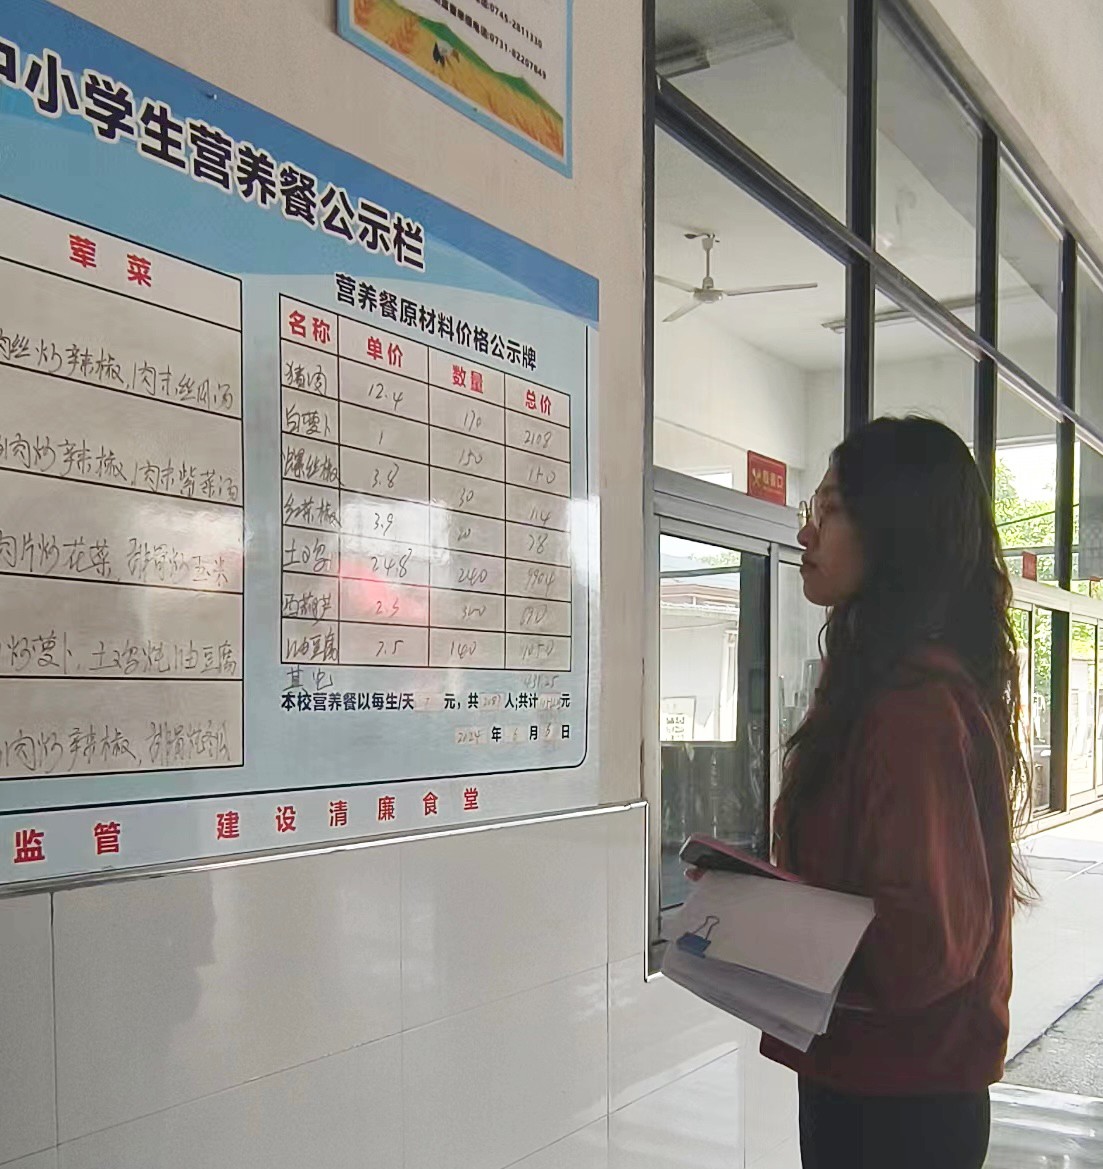 话:0745-2811330
电话:0731-82207849
中小学生营养餐公示栏
荤菜
肉丝炒辣椒,肉末丝瓜汤
肉炒辣椒,肉末紫菜汤
肉片炒花菜 排骨炒玉米
炒萝卜,土鸡炖油豆腐
肉炒辣椒,排骨炖
营养餐原材料价格公示牌
名称 单价 数量 总价
猪肉 12.4 170 2108
白萝卜 1 150 150
螺丝椒 3.8 30 114
红菜椒 3.9 20 78
土鸡 24.8 240
西葫芦 2.5 300
油豆腐 7.5 140 1050
其它 431.25
本校营养餐以每生/天 元,共 人;共计 元
2024 年 6 月 5 日
监管 建设清廉食堂